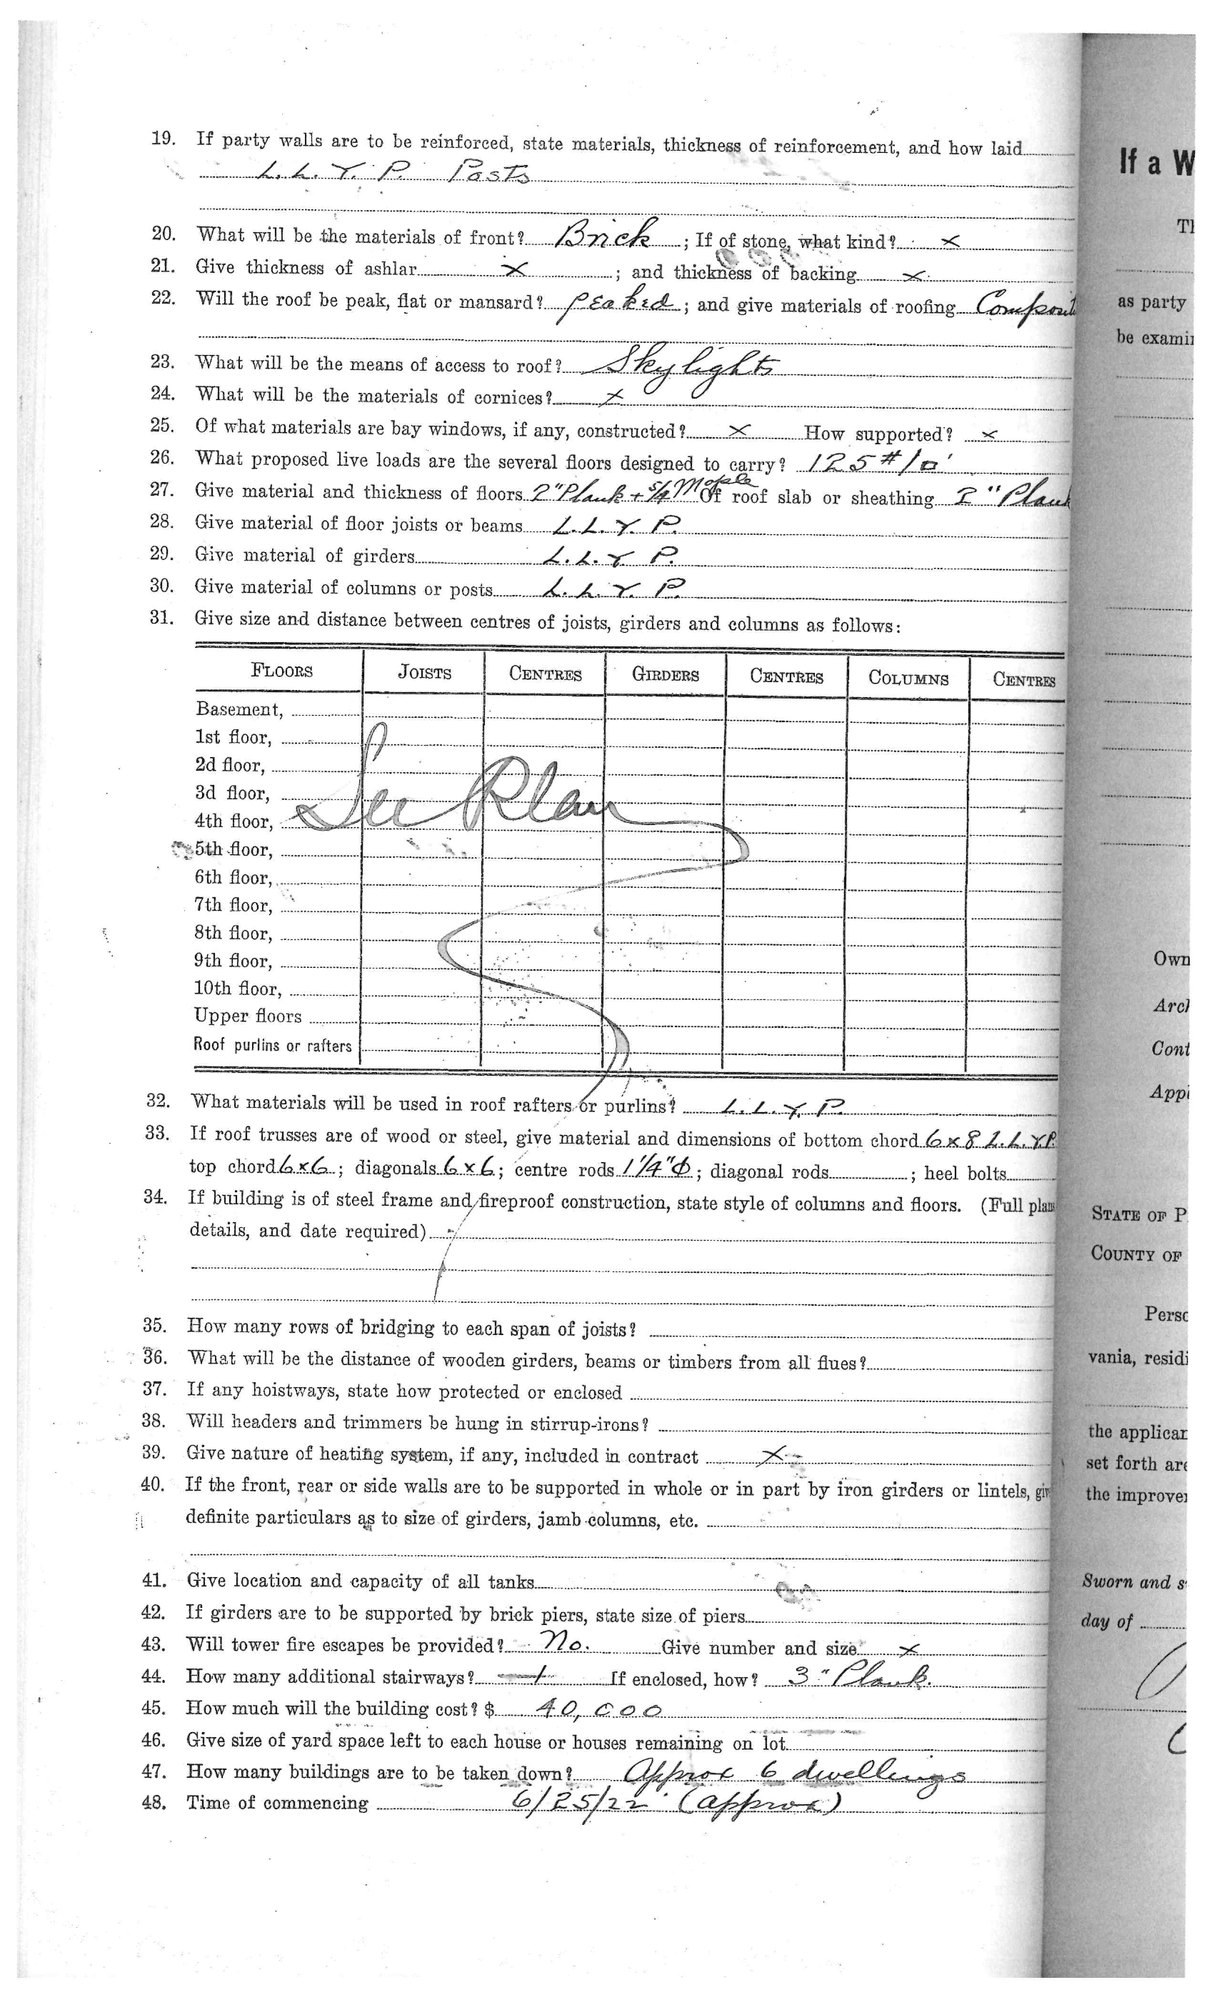 19. If party walls are to be reinforced, state materials, thickness of reinforcement, and how laid
L. L. Y. P. Posts
20. What will be the materials of front? Brick ; If of stone, what kind? x
21. Give thickness of ashlar x ; and thickness of backing x
22. Will the roof be peak, flat or mansard? peaked ; and give materials of roofing Composit
23. What will be the means of access to roof? Skylights
24. What will be the materials of cornices? x
25. Of what materials are bay windows, if any, constructed? x How supported? x
26. What proposed live loads are the several floors designed to carry? 125 #/□'
27. Give material and thickness of floors 2" Plank + 5/4 Maple Of roof slab or sheathing 2" Plank
28. Give material of floor joists or beams L. L. Y. P.
29. Give material of girders L. L. Y P.
30. Give material of columns or posts L. L. Y. P.
31. Give size and distance between centres of joists, girders and columns as follows:
FLOORS JOISTS CENTRES GIRDERS CENTRES COLUMNS CENTRES
Basement,
1st floor,
2d floor,
3d floor,
See Plan
4th floor,
5th floor,
6th floor,
7th floor,
8th floor,
9th floor,
10th floor,
Upper floors
Roof purlins or rafters
32. What materials will be used in roof rafters or purlins? L. L. Y. P.
33. If roof trusses are of wood or steel, give material and dimensions of bottom chord 6x8 L. L. Y.P.
top chord 6x6 ; diagonals 6x6 ; centre rods 1 1/4" Φ ; diagonal rods ; heel bolts
34. If building is of steel frame and fireproof construction, state style of columns and floors. (Full plans
details, and date required)
35. How many rows of bridging to each span of joists?
36. What will be the distance of wooden girders, beams or timbers from all flues?
37. If any hoistways, state how protected or enclosed
38. Will headers and trimmers be hung in stirrup-irons?
39. Give nature of heating system, if any, included in contract x
40. If the front, rear or side walls are to be supported in whole or in part by iron girders or lintels, giv
definite particulars as to size of girders, jamb columns, etc.
41. Give location and capacity of all tanks
42. If girders are to be supported by brick piers, state size of piers
43. Will tower fire escapes be provided? No. Give number and size x
44. How many additional stairways? 1 If enclosed, how? 3" Plank.
45. How much will the building cost? $ 40,000
46. Give size of yard space left to each house or houses remaining on lot
47. How many buildings are to be taken down? Approx 6 dwellings
48. Time of commencing 6/25/22 (approx)
If a W
Th
as party
be examin
Own
Arch
Cont
Appl
STATE OF P
COUNTY OF
Perso
vania, residi
the applican
set forth are
the improver
Sworn and s
day of